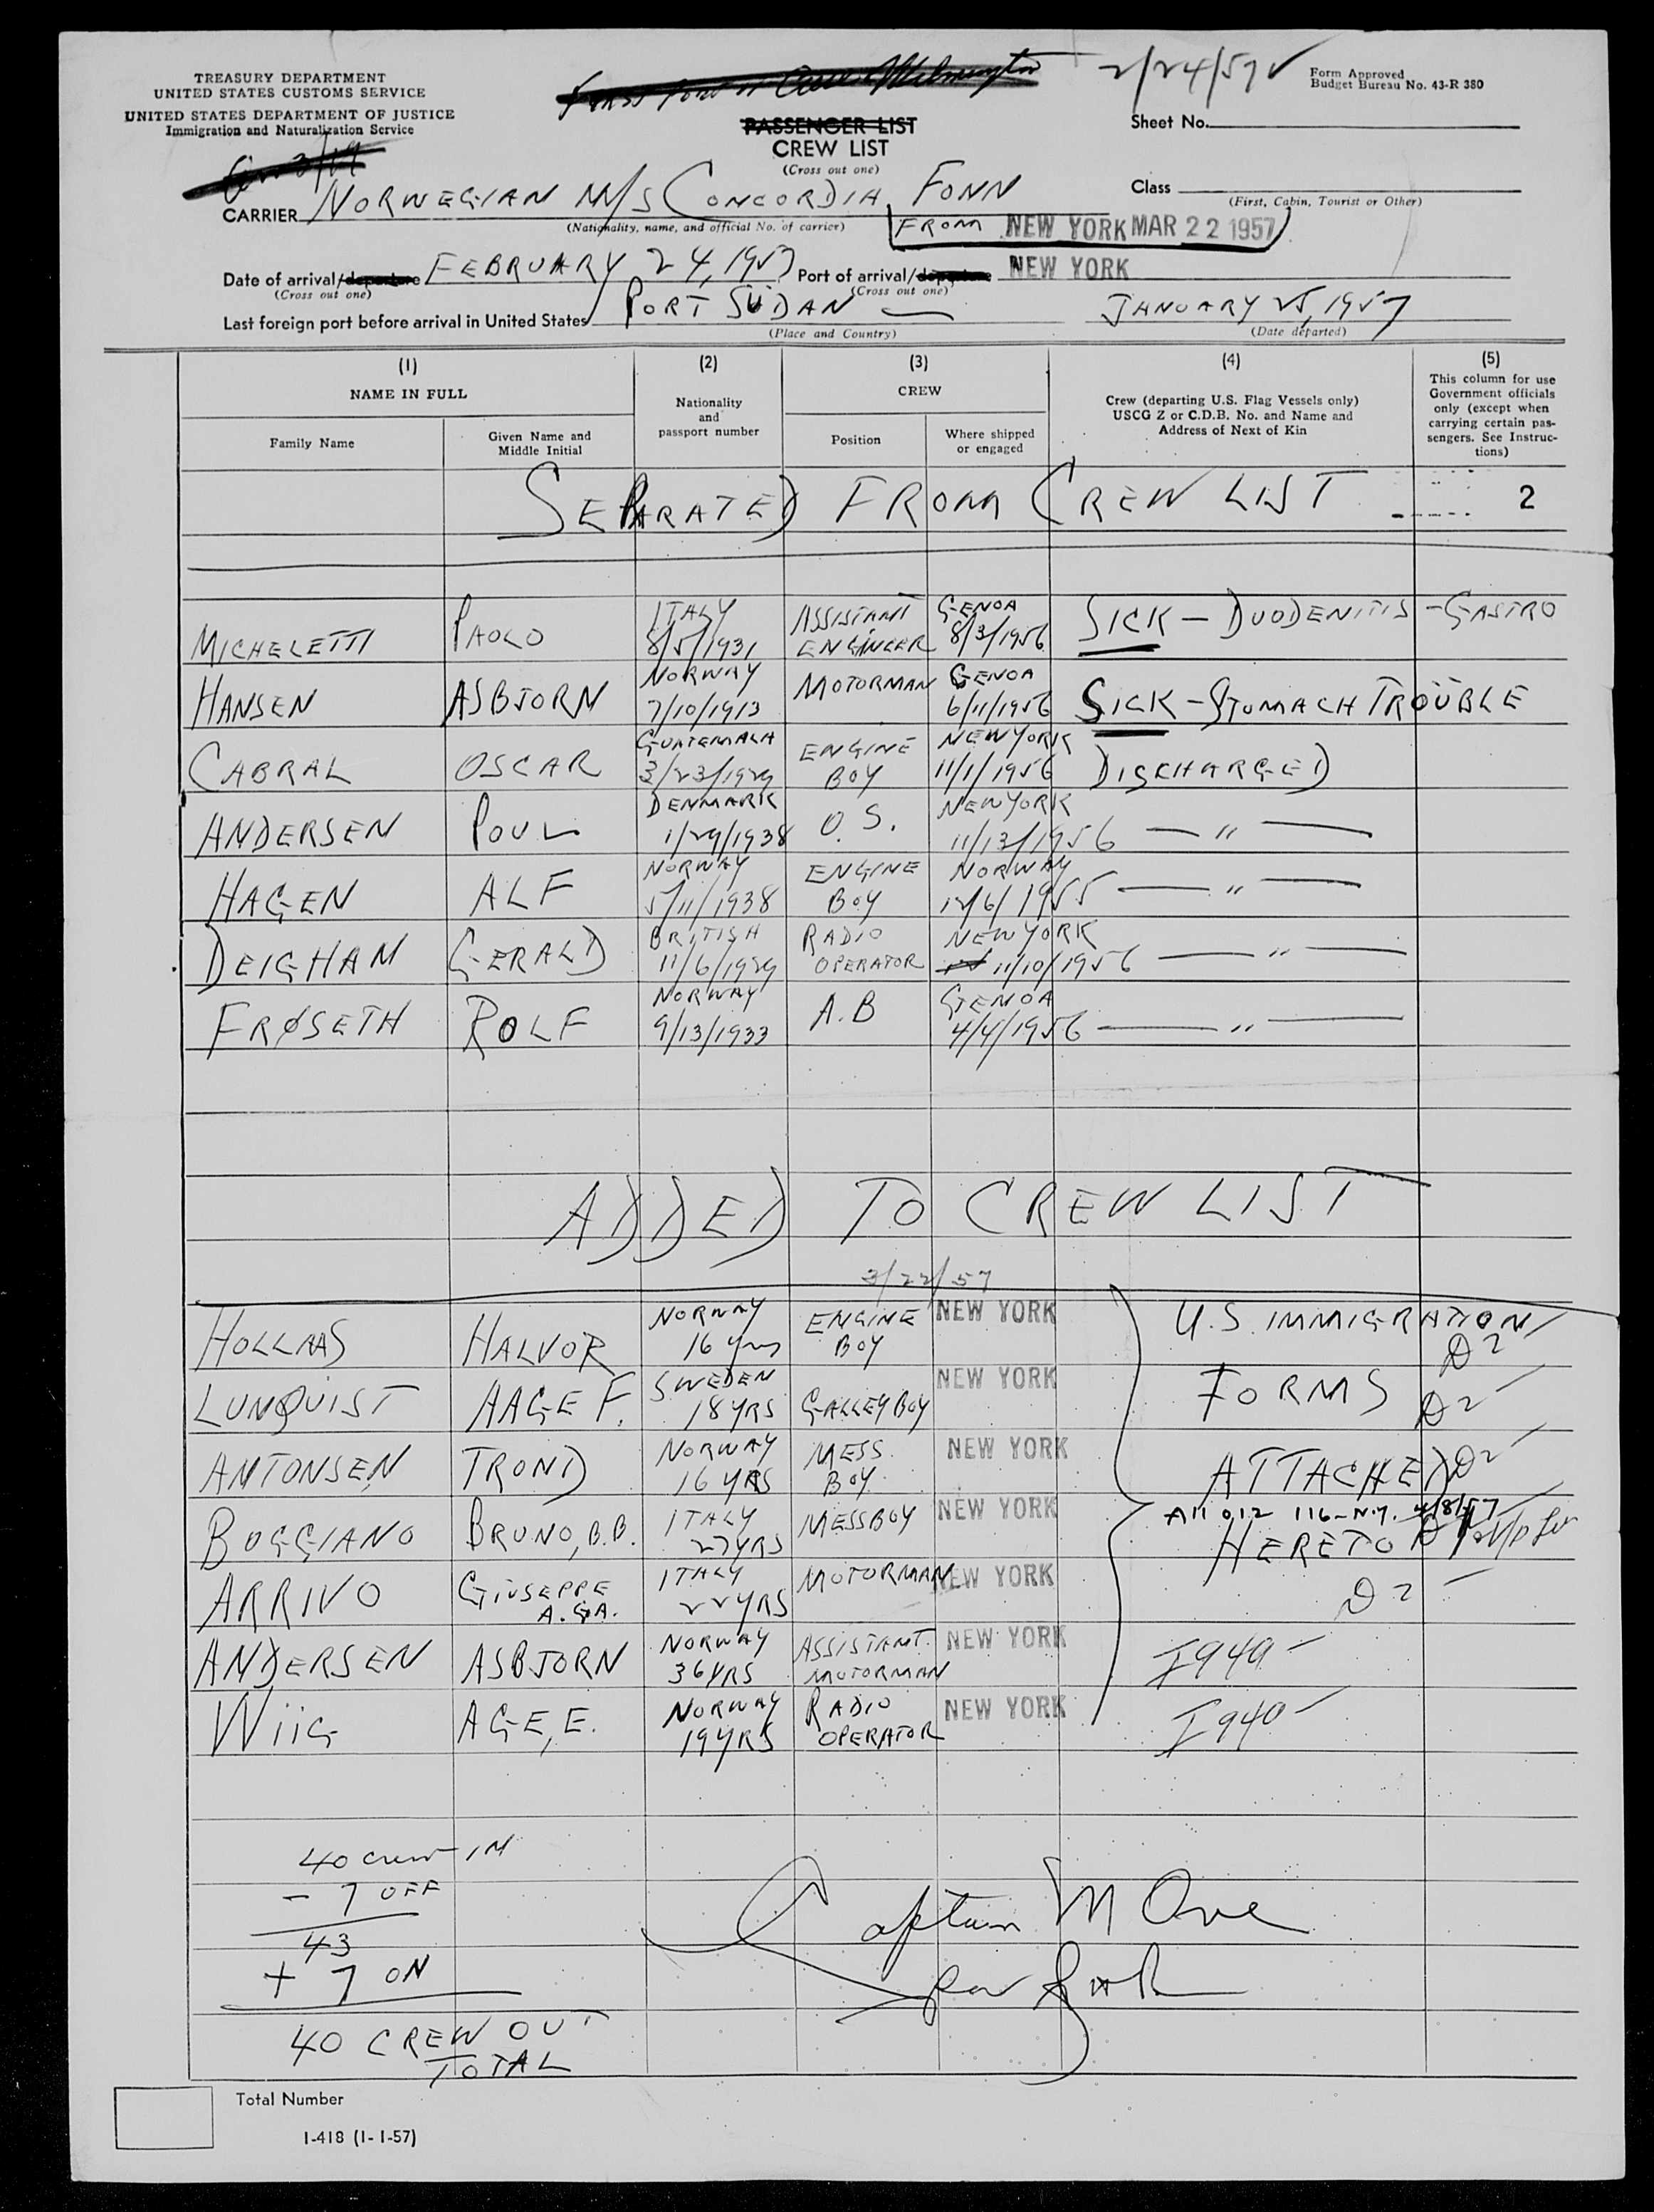 TREASURY DEPARTMENT
UNITED STATES CUSTOMS SERVICE
UNITED STATES DEPARTMENT OF JUSTICE
Immigration and Naturalization Service
2/24/57
Form Approved
Budget Bureau No. 43-R 380
PASSENGER LIST
CREW LIST
(Cross out one)
Sheet No.
Class
(First, Cabin, Tourist or Other)
CARRIER NORWEGIAN M/S CONCORDIA FONN
(Nationality, name, and official No. of carrier)
FROM NEW YORK MAR 22 1957
Date of arrival/departure FEBRUARY 24, 1957 Port of arrival/departure NEW YORK
(Cross out one) (Cross out one)
Last foreign port before arrival in United States PORT SUDAN JANUARY 25, 1957
(Place and Country) (Date departed)
(1) (2) (3) (4) (5)
NAME IN FULL
Family Name
Given Name and Middle Initial
Nationality and passport number
CREW
Position
Where shipped or engaged
Crew (departing U.S. Flag Vessels only)
USCG Z or C.D.B. No. and Name and
Address of Next of Kin
This column for use
Government officials
only (except when
carrying certain pas-
sengers. See Instruc-
tions)
SEPARATED FROM CREW LIST 2
MICHELETTI PAOLO ITALY 8/5/1931 ASSISTANT ENGINEER GENOA 8/3/1956 SICK - DUODENITIS - GASTRO
HANSEN ASBJORN NORWAY 7/10/1913 MOTORMAN GENOA 6/11/1956 SICK - STOMACH TROUBLE
CABRAL OSCAR GUATEMALA 3/23/1929 ENGINE BOY NEW YORK 11/1/1956 DISCHARGED
ANDERSEN POUL DENMARK 1/29/1938 O.S. NEW YORK 11/13/1956 — " —
HAGEN ALF NORWAY 5/11/1938 ENGINE BOY NORWAY 12/6/1955 — " —
DEIGHAM GERALD BRITISH 11/6/1929 RADIO OPERATOR NEW YORK 11/10/1956 — " —
FRØSETH ROLF NORWAY 9/13/1933 A.B GENOA 4/4/1956 — " —
ADDED TO CREW LIST
3/22/57
HOLLAAS HALVOR NORWAY 16 yrs ENGINE BOY NEW YORK U.S. IMMIGRATION D2
LUNQUIST AAGE F. SWEDEN 18 YRS GALLEY BOY NEW YORK FORMS D2
ANTONSEN TROND NORWAY 16 YRS MESS BOY NEW YORK ATTACHED D2
A11 012 116-N.Y. 4/8/57
BOGGIANO BRUNO, B.B. ITALY 27 YRS MESSBOY NEW YORK HERETO
ARRIVO GIUSEPPE A.G.A. ITALY 22 YRS MOTORMAN NEW YORK D2
ANDERSEN ASBJORN NORWAY 36 YRS ASSISTANT MOTORMAN NEW YORK I940
WIIG AGE, E. NORWAY 19 YRS RADIO OPERATOR NEW YORK I940
40 crew IN
- 7 OFF
43
+ 7 ON
40 CREW OUT
TOTAL
Captain M Ove
Total Number
I-418 (1-1-57)